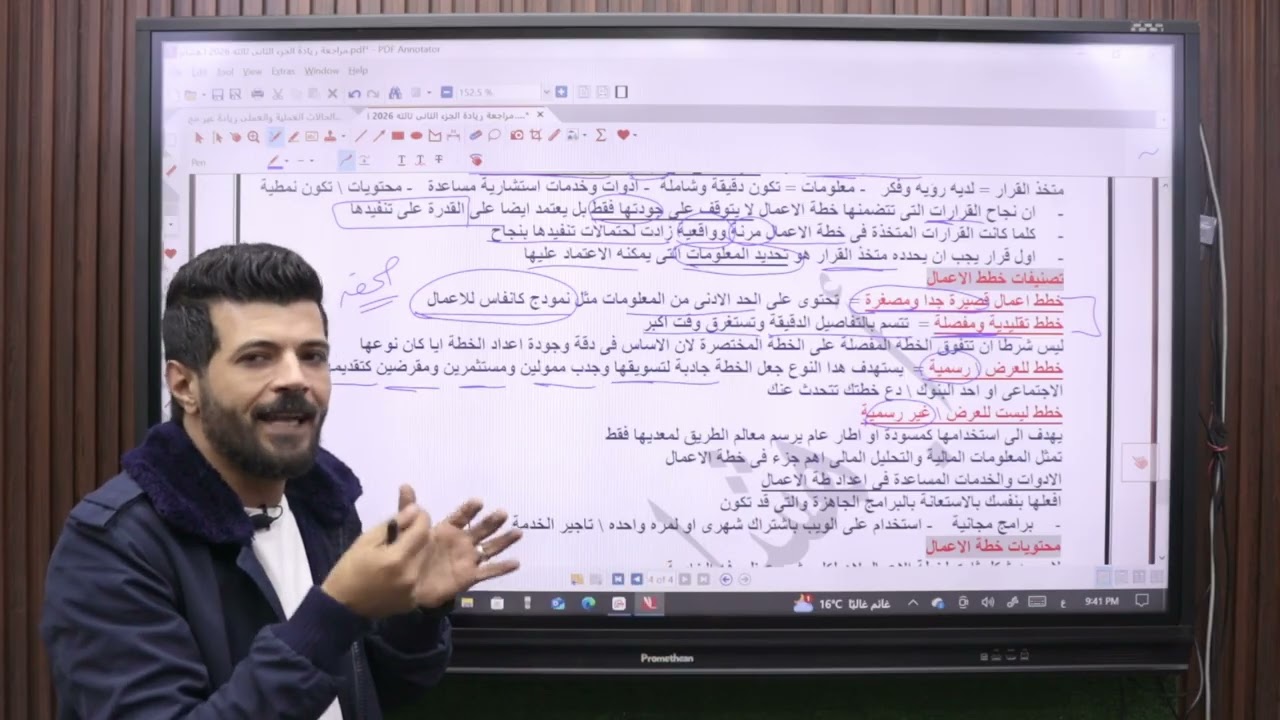 مراجعة ريادة الجزء الثانى ثالثه 2026 .pdf* - PDF Annotator
Edit Tool View Extras Window Help
152.5 %
الحالات العملية والعملى ريادة عبر مع...
مراجعة ريادة الجزء الثانى ثالثه 2026 ا....*
Pen
متخذ القرار = لديه رويه وفكر - معلومات = تكون دقيقة وشاملة - ادوات وخدمات استشارية مساعدة - محتويات \ تكون نمطية
- ان نجاح القرارات التى تتضمنها خطة الاعمال لا يتوقف على جودتها فقط بل يعتمد ايضا على القدرة على تنفيدها
- كلما كانت القرارات المتخذة فى خطة الاعمال مرنة وواقعية زادت لحتمالات تنفيدها بنجاح
- اول قرار يجب ان يحدده متخذ القرار هو تحديد المعلومات التى يمكنه الاعتماد عليها
تصنيفات خطط الاعمال
خطط اعمال قصيرة جدا ومصغرة = تحتوى على الحد الادنى من المعلومات مثل نمودج كانفاس للاعمال
خطط تقليدية ومفصلة = تتسم بالتفاصيل الدقيقة وتستغرق وقت اكبر
ليس شرطا ان تتفوق الخطة المفصلة على الخطة المختصرة لان الاساس فى دقة وجودة اعداد الخطة ايا كان نوعها
خطط للعرض \ رسمية = يستهدف هدا النوع جعل الخطة جادبة لتسويقها وجدب ممولين ومستثمرين ومقرضين كتقديمها
الاجتماعى او احد البنوك \ دع خطتك تتحدث عنك
خطط ليست للعرض \ غير رسمية
يهدف الى استخدامها كمسودة او اطار عام يرسم معالم الطريق لمعديها فقط
تمثل المعلومات المالية والتحليل المالى اهم جزء فى خطة الاعمال
الادوات والخدمات المساعدة فى اعداد طة الاعمال
افعلها بنفسك بالاستعانة بالبرامج الجاهزة والتى قد تكون
- برامج مجانية - استخدام على الويب باشتراك شهرى او لمره واحده \ تاجير الخدمة
محتويات خطة الاعمال
4 of 4
16°C غائم غالبًا
ع
9:41 PM
Promethean